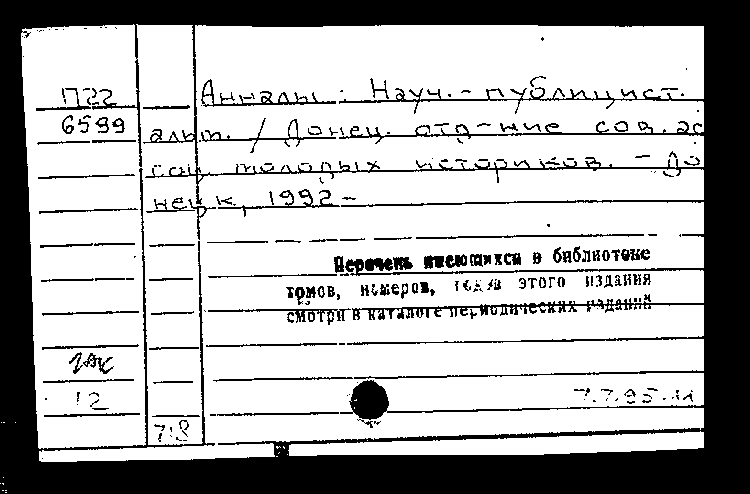 П22 Анналы : Науч.-публицист.
6599 альм. / Донец. отд-ние сов. ас
соц. молодых историков. - До
нецк, 1992 -
Перечень имеющихся в библиотеке
томов, номеров, годов этого издания
смотри в каталоге периодических изданий
12 7.7.95.